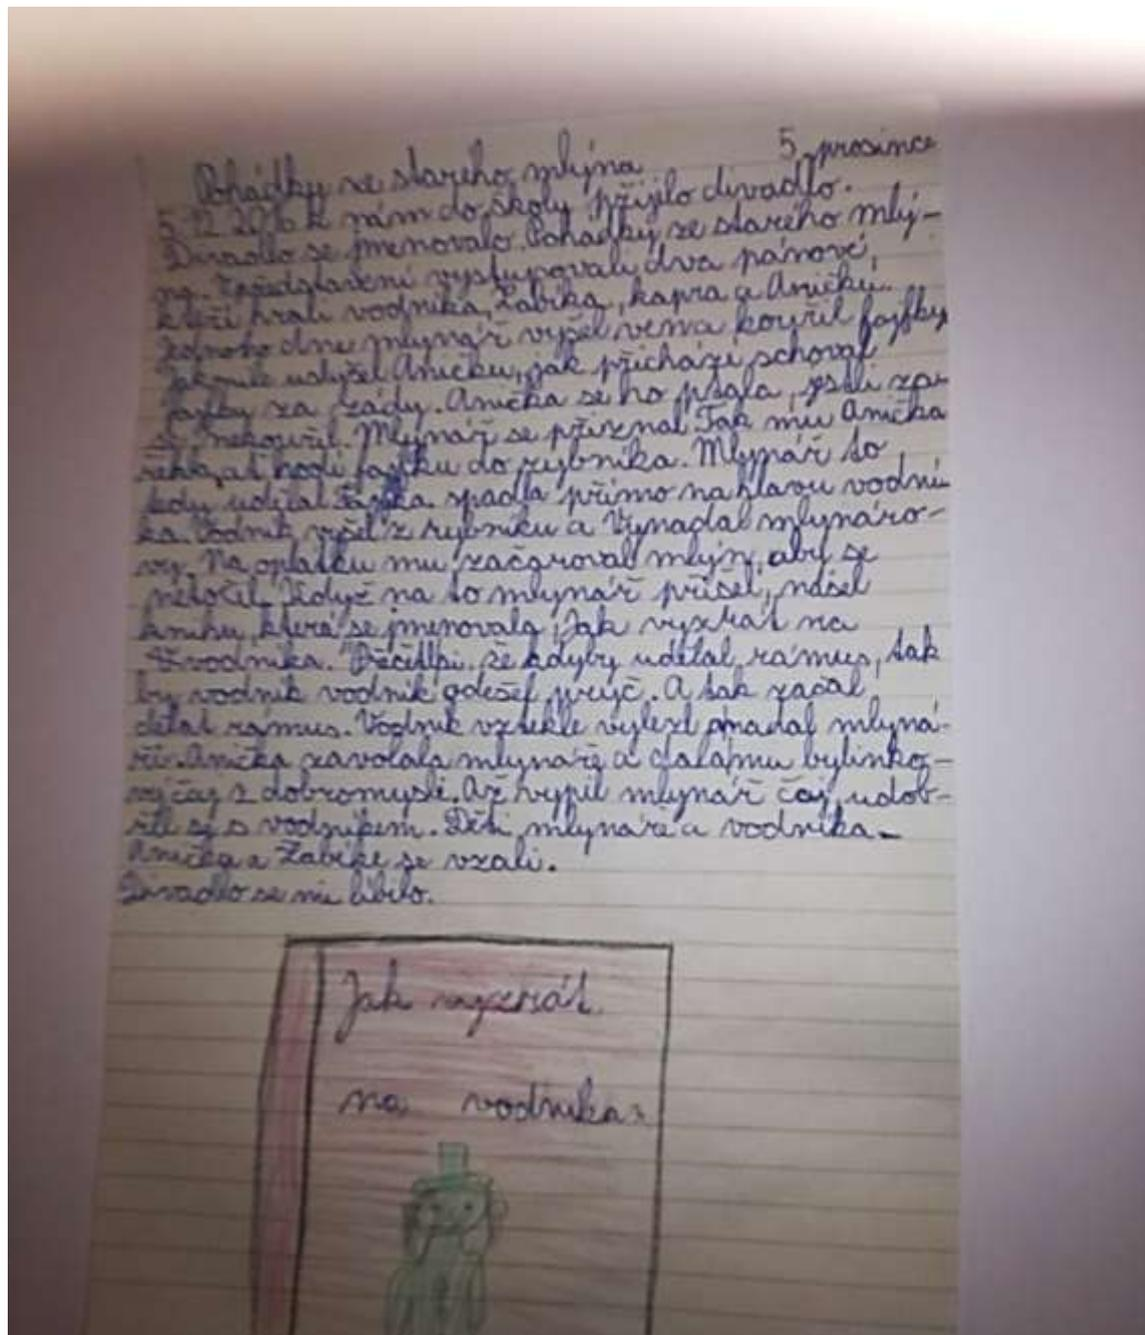 5. prosince
Pohádky ze starého mlýna
5.12.2016 k nám do školy přijelo divadlo.
Divadlo se jmenovalo Pohádky ze starého mlý-
na. V představení vystupovali dva pánové,
kteří hráli vodníka, Žabíka, kapra a Aničku.
Jednoho dne mlynář vyšel ven a kouřil fajfky
Jakmile uslyšel Aničku, jak přichází, schoval
fajfky za zády. Anička se ho ptala, jestli zas
si nekouřil. Mlynář se přiznal Tak mu Anička
řekla, ať hodí fajfku do rybníka. Mlynář to
tedy udělal Fajfka spadla přímo na hlavu vodní-
ka. Vodník vyšel z rybníku a Vynadal mlynáro-
vy. Na oplátku mu začaroval mlýn, aby se
netočil. Když na to mlynář přišel, našel
knihu, která se jmenovala, Jak vyzrát na
vodníka. " Přečetl si, že kdyby udělal rámus, tak
by vodník vodník odešel pryč. A tak začal
dělat ramus. Vodník vztekle vylezl a nadal mlyná-
ři. Anička zavolala mlynáře a dala mu bylinko-
vý čaj z dobromysli. Až vypil mlynář čaj, udob-
řil se s vodníkem. Děti, mlynáře a vodníka -
Anička a Žabík se vzali.
Divadlo se mi líbilo.
Jak vyzrát
na vodníka